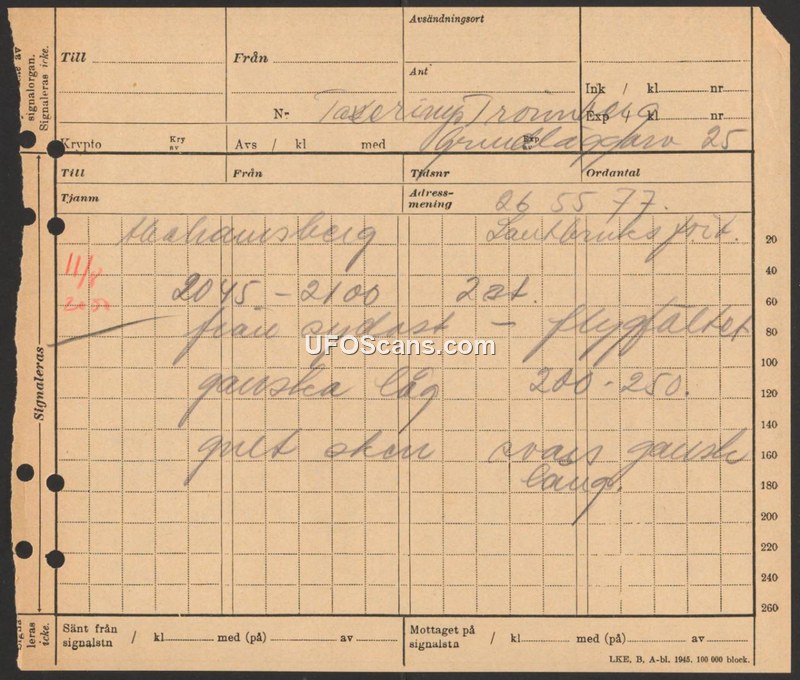 av
signalorgan.
Signaleras icke.
Avsändningsort
Till
Från
Ant
Ink / kl nr
Nr
Exp 4 kl nr
Krypto
Kry av
Avs / kl med
25
Till
Från
Tidsnr
Ordantal
Tjanm
Adress-
mening
26 55 77.
20
11/8
2045 - 2100 2 st.
40
60
från sydost - flygfältet
80
Signaleras
UFOScans.com
100
ganska låg 200 - 250.
120
140
gult sken svans ganska
160
lång.
180
200
220
240
260
leras
icke.
Sänt från
signalstn
/ kl med (på) av
Mottaget på
signalstn
/ kl med (på) av
LKE, B, A-bl. 1945. 100 000 block.